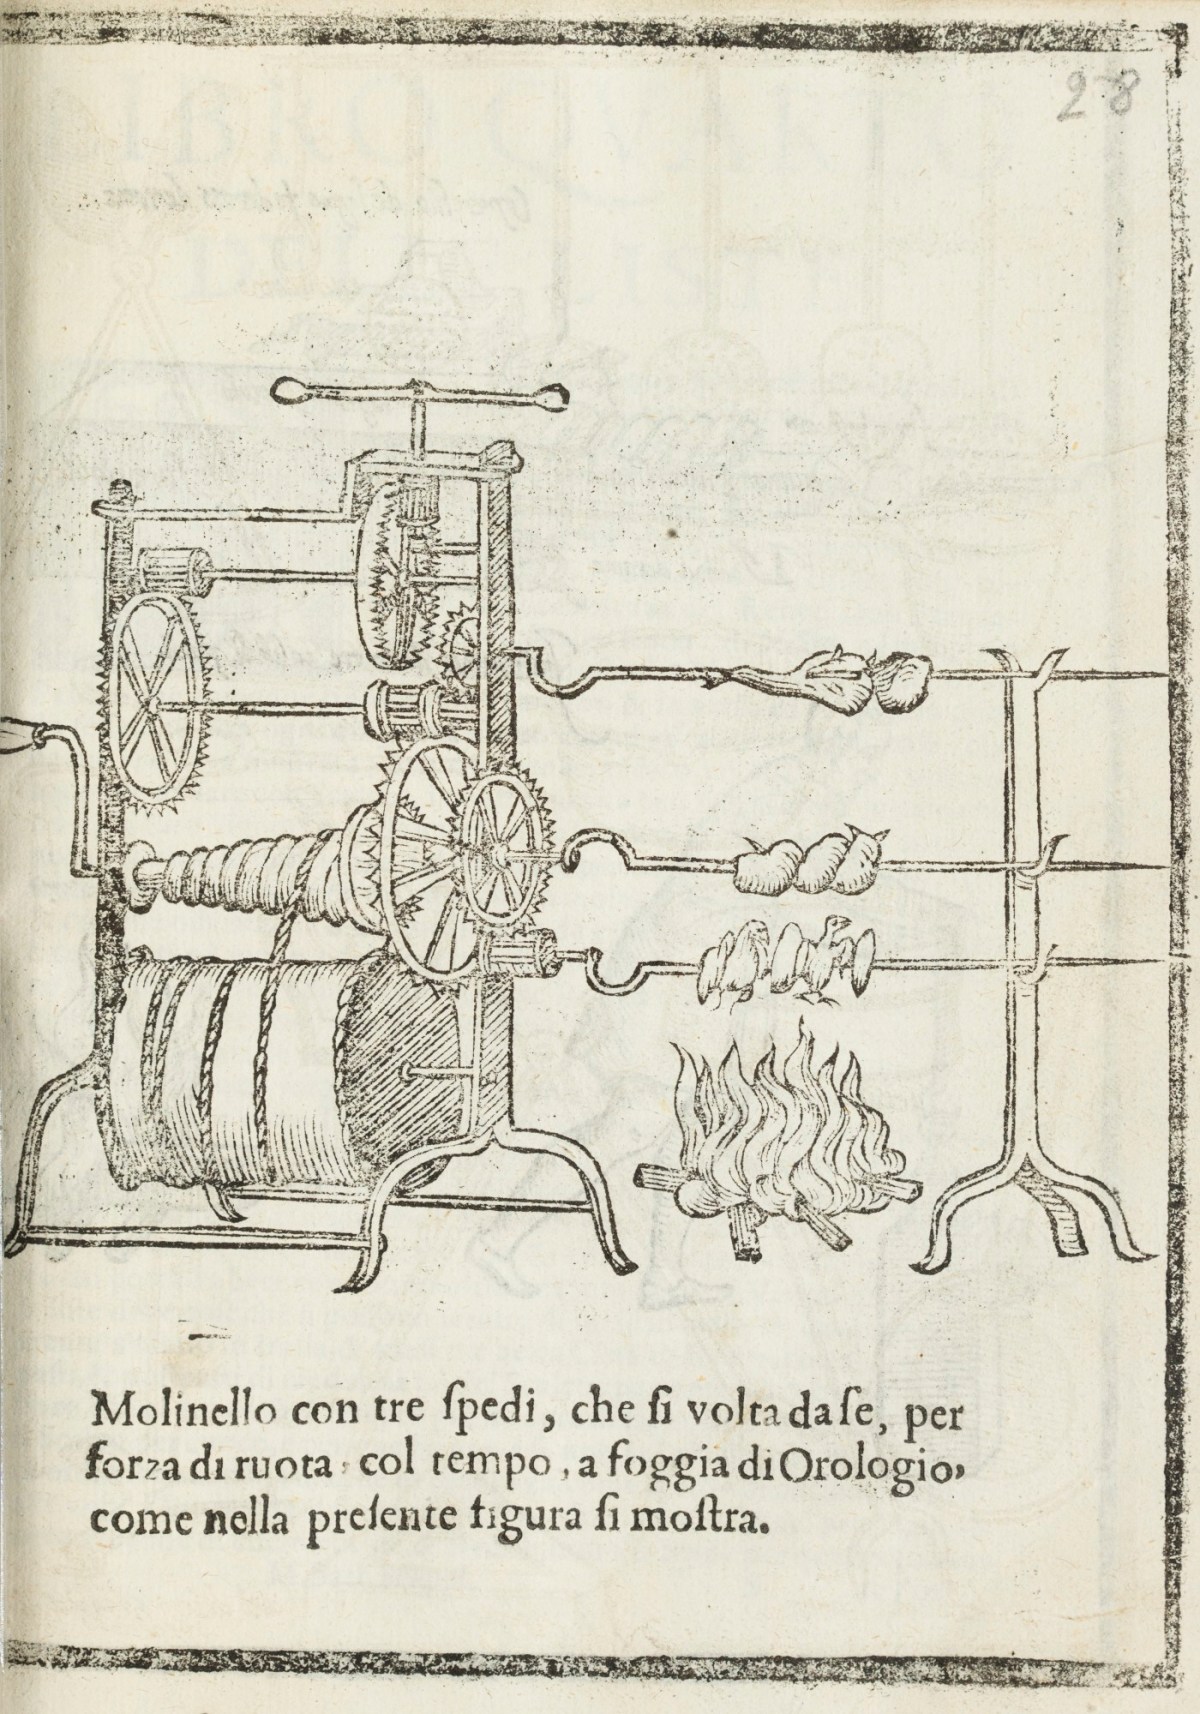 28
Molinello con tre ſpedi, che ſi volta da ſe, per
forza di ruota col tempo, a foggia di Orologio,
come nella preſente figura ſi moſtra.